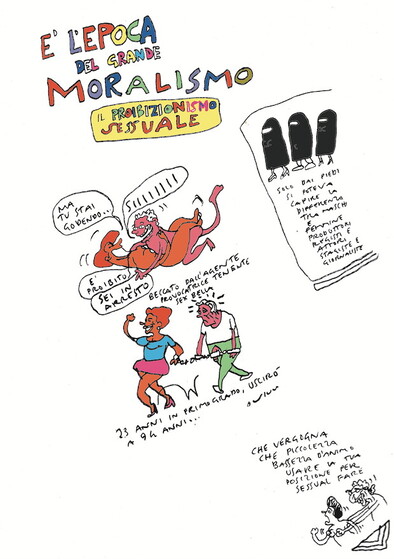 E' L'EPOCA
DEL GRANDE
MORALISMO
IL PROIBIZIONISMO
SESSUALE
MA
TU STAI
GODENDO...
SIIIIIIIII
E'
PROIBITO
SEI IN
ARRESTO
BECCATO DALL'AGENTE
PROVOCATRICE TENENTE
SEX BELLA
23 ANNI IN PRIMO GRADO, USCIRÒ
A 94 ANNI...
SOLO DAI PIEDI
SI POTEVA
CAPIRE LA
DIFFERENZA
TRA MASCHI
E
FEMMINE
PRODUTTORI
REGISTI E
ATTORI E
STAGISTE E
GIORNALISTE
CHE VERGOGNA
CHE PICCOLEZZA
BASSEZZA D'ANIMO
USARE LA TUA
POSIZIONE PER
SESSUAL FARE